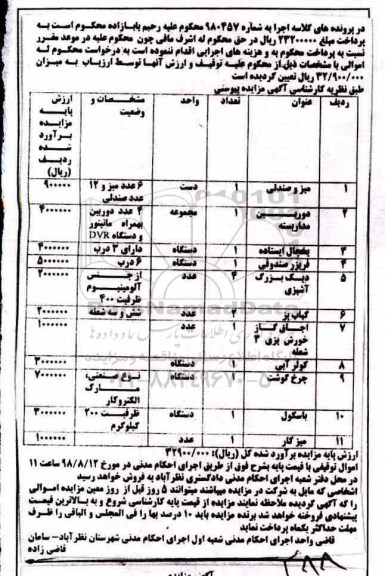 در پرونده های کلاسه اجرا به شماره ۹۸۰۳۵۷ محکوم علیه رحیم بابازاده محکوم است به
پرداخت مبلغ ۲۳۲۰۰۰۰۰ ریال در حق محکوم له اشرف مافی چون محکوم علیه در موعد مقرر
نسبت به پرداخت محکوم به و هزینه های اجرایی اقدام ننموده است به درخواست محکوم له
اموالی با مشخصات ذیل از محکوم علیه توقیف و ارزش آنها توسط ارزیاب به میزان
۳۲/۹۰۰/۰۰۰ ریال تعیین گردیده است
طبق نظریه کارشناسی آگهی مزایده پیوستی
ردیف عنوان تعداد واحد مشخصات و وضعیت ارزش پایه مزایده برآورد شده ردیف (ریال)
۱ میز و صندلی ۱ دست ۶ عدد میز و ۱۲ عدد صندلی ۹۰۰۰۰۰
۲ دوربین مداربسته ۱ مجموعه ۴ عدد دوربین بهمراه مانیتور و دستگاه DVR ۴۰۰۰۰۰۰
۳ یخچال ایستاده ۱ دستگاه دارای ۳ درب ۴۰۰۰۰۰۰
۴ فریزر صندوقی ۱ دستگاه ۶ درب ۵۰۰۰۰۰۰
۵ دیگ بزرگ آشپزی ۴ عدد از جنس آلومینیوم ظرفیت ۴۰۰ ۲۰۰۰۰۰۰
۶ کباب پز ۲ عدد شش و سه شعله ۲۰۰۰۰۰۰
۷ اجاق گاز خورش پزی ۳ شعله ۱ عدد ۱۰۰۰۰۰۰
۸ کولر آبی ۱ دستگاه ۳۰۰۰۰۰۰
۹ چرخ گوشت ۱ دستگاه نوع صنعتی، مارک الکتروکار ۷۰۰۰۰۰۰
۱۰ باسکول ۱ دستگاه ظرفیت ۲۰۰ کیلوگرم ۳۰۰۰۰۰۰
۱۱ میز کار ۱ عدد ۱۰۰۰۰۰۰
ارزش پایه مزایده برآورد شده کل (ریال): ۳۲۹۰۰/۰۰۰
اموال توقیفی با قیمت پایه بشرح فوق از طریق اجرای احکام مدنی در مورخ ۹۸/۸/۱۲ ساعت ۱۱
در محل دفتر شعبه اجرای احکام مدنی دادگستری نظرآباد به فروش خواهد رسید
اشخاصی که مایل به شرکت در مزایده میباشند میتوانند ۵ روز قبل از روز معین مزایده اموالی
را که آگهی گردیده ملاحظه نمایند مزایده از قیمت پایه کارشناسی شروع و به بالاترین قیمت
پیشنهادی فروخته خواهد شد برنده مزایده باید ۱۰ درصد بها را فی المجلس و الباقی را ظرف
مهلت حداکثر یکماه پرداخت نماید
قاضی واحد اجرای احکام مدنی شعبه اول اجرای احکام مدنی شهرستان نظرآباد- سامان
قاضی زاده